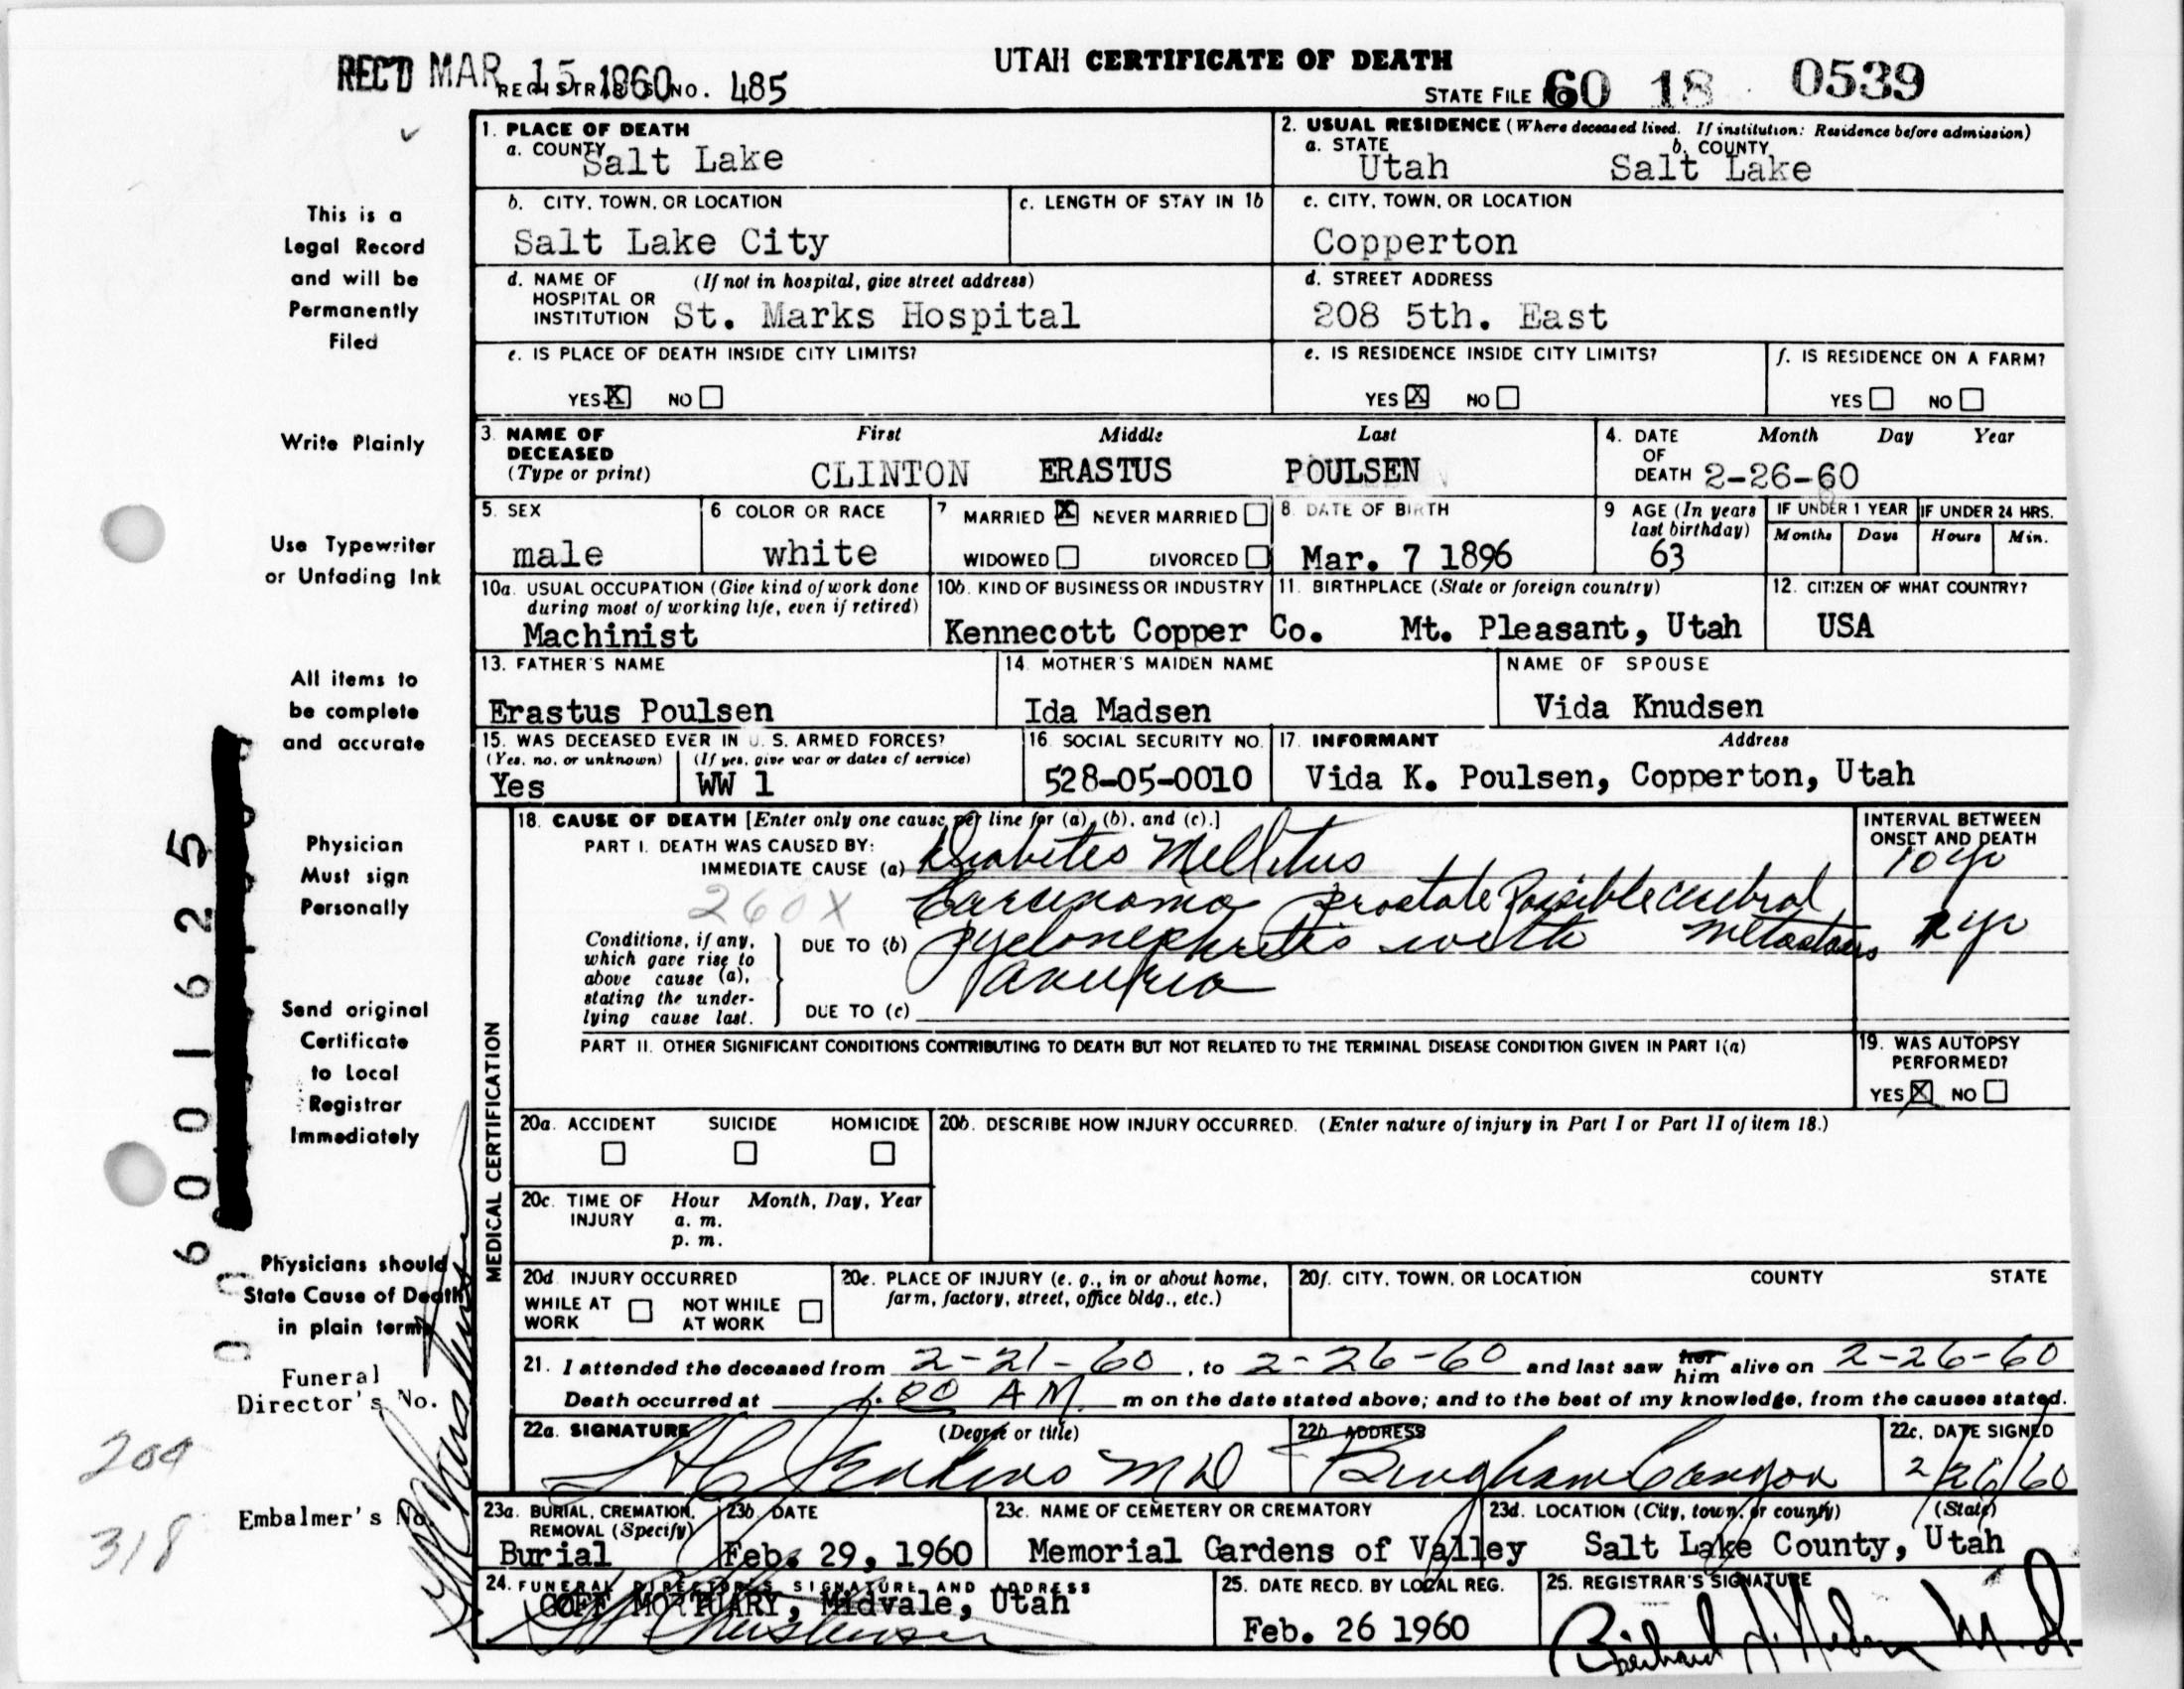 REC'D MAR 15 1960 REGISTRAR'S NO. 485
UTAH CERTIFICATE OF DEATH
STATE FILE 60 18 0539
This is a
Legal Record
and will be
Permanently
Filed
Write Plainly
Use Typewriter
or Unfading Ink
All items to
be complete
and accurate
Physician
Must sign
Personally
Send original
Certificate
to Local
Registrar
Immediately
Physicians should
State Cause of Death
in plain terms
Funeral
Director's No.
204
Embalmer's No.
318
6001625
1. PLACE OF DEATH
a. COUNTY
Salt Lake
2. USUAL RESIDENCE (Where deceased lived. If institution: Residence before admission)
a. STATE b. COUNTY
Utah Salt Lake
b. CITY, TOWN, OR LOCATION
Salt Lake City
c. LENGTH OF STAY IN 1b
c. CITY, TOWN, OR LOCATION
Copperton
d. NAME OF (If not in hospital, give street address)
HOSPITAL OR
INSTITUTION St. Marks Hospital
d. STREET ADDRESS
208 5th. East
e. IS PLACE OF DEATH INSIDE CITY LIMITS?
YES X NO
e. IS RESIDENCE INSIDE CITY LIMITS?
YES X NO
f. IS RESIDENCE ON A FARM?
YES NO
3. NAME OF DECEASED (Type or print)
First Middle Last
CLINTON ERASTUS POULSEN
4. DATE OF DEATH Month Day Year
2-26-60
5. SEX
male
6. COLOR OR RACE
white
7. MARRIED X NEVER MARRIED
WIDOWED DIVORCED
8. DATE OF BIRTH
Mar. 7 1896
9. AGE (In years last birthday)
63
IF UNDER 1 YEAR IF UNDER 24 HRS.
Months Days Hours Min.
10a. USUAL OCCUPATION (Give kind of work done
during most of working life, even if retired)
Machinist
10b. KIND OF BUSINESS OR INDUSTRY
Kennecott Copper Co.
11. BIRTHPLACE (State or foreign country)
Mt. Pleasant, Utah
12. CITIZEN OF WHAT COUNTRY?
USA
13. FATHER'S NAME
Erastus Poulsen
14. MOTHER'S MAIDEN NAME
Ida Madsen
NAME OF SPOUSE
Vida Knudsen
15. WAS DECEASED EVER IN U. S. ARMED FORCES?
(Yes, no, or unknown) (If yes, give war or dates of service)
Yes WW 1
16. SOCIAL SECURITY NO.
528-05-0010
17. INFORMANT Address
Vida K. Poulsen, Copperton, Utah
MEDICAL CERTIFICATION
18. CAUSE OF DEATH [Enter only one cause per line for (a), (b), and (c).]
PART I. DEATH WAS CAUSED BY:
IMMEDIATE CAUSE (a) Diabetes Mellitus
260X
Carcinoma Prostate Possible cerebral
Metastasis
Conditions, if any,
which gave rise to
above cause (a),
stating the under-
lying cause last.
DUE TO (b) Pyelonephritis with
anuria
DUE TO (c)
INTERVAL BETWEEN
ONSET AND DEATH
10 yr
yr
PART II. OTHER SIGNIFICANT CONDITIONS CONTRIBUTING TO DEATH BUT NOT RELATED TO THE TERMINAL DISEASE CONDITION GIVEN IN PART I(a)
19. WAS AUTOPSY
PERFORMED?
YES X NO
20a. ACCIDENT SUICIDE HOMICIDE
20b. DESCRIBE HOW INJURY OCCURRED. (Enter nature of injury in Part I or Part II of item 18.)
20c. TIME OF INJURY Hour Month, Day, Year
a. m.
p. m.
20d. INJURY OCCURRED
WHILE AT WORK NOT WHILE AT WORK
20e. PLACE OF INJURY (e. g., in or about home,
farm, factory, street, office bldg., etc.)
20f. CITY, TOWN, OR LOCATION COUNTY STATE
21. I attended the deceased from 2-21-60, to 2-26-60 and last saw her him alive on 2-26-60
Death occurred at 1:00 A M. m on the date stated above; and to the best of my knowledge, from the causes stated.
22a. SIGNATURE (Degree or title)
Jenkins MD
22b. ADDRESS
Bingham Canyon
22c. DATE SIGNED
2/26/60
23a. BURIAL, CREMATION,
REMOVAL (Specify)
Burial
23b. DATE
Feb. 29, 1960
23c. NAME OF CEMETERY OR CREMATORY
Memorial Gardens of Valley
23d. LOCATION (City, town, or county) (State)
Salt Lake County, Utah
24. FUNERAL DIRECTOR'S SIGNATURE AND ADDRESS
GOFF MORTUARY, Midvale, Utah
Christensen
25. DATE RECD. BY LOCAL REG.
Feb. 26 1960
25. REGISTRAR'S SIGNATURE
M.D.